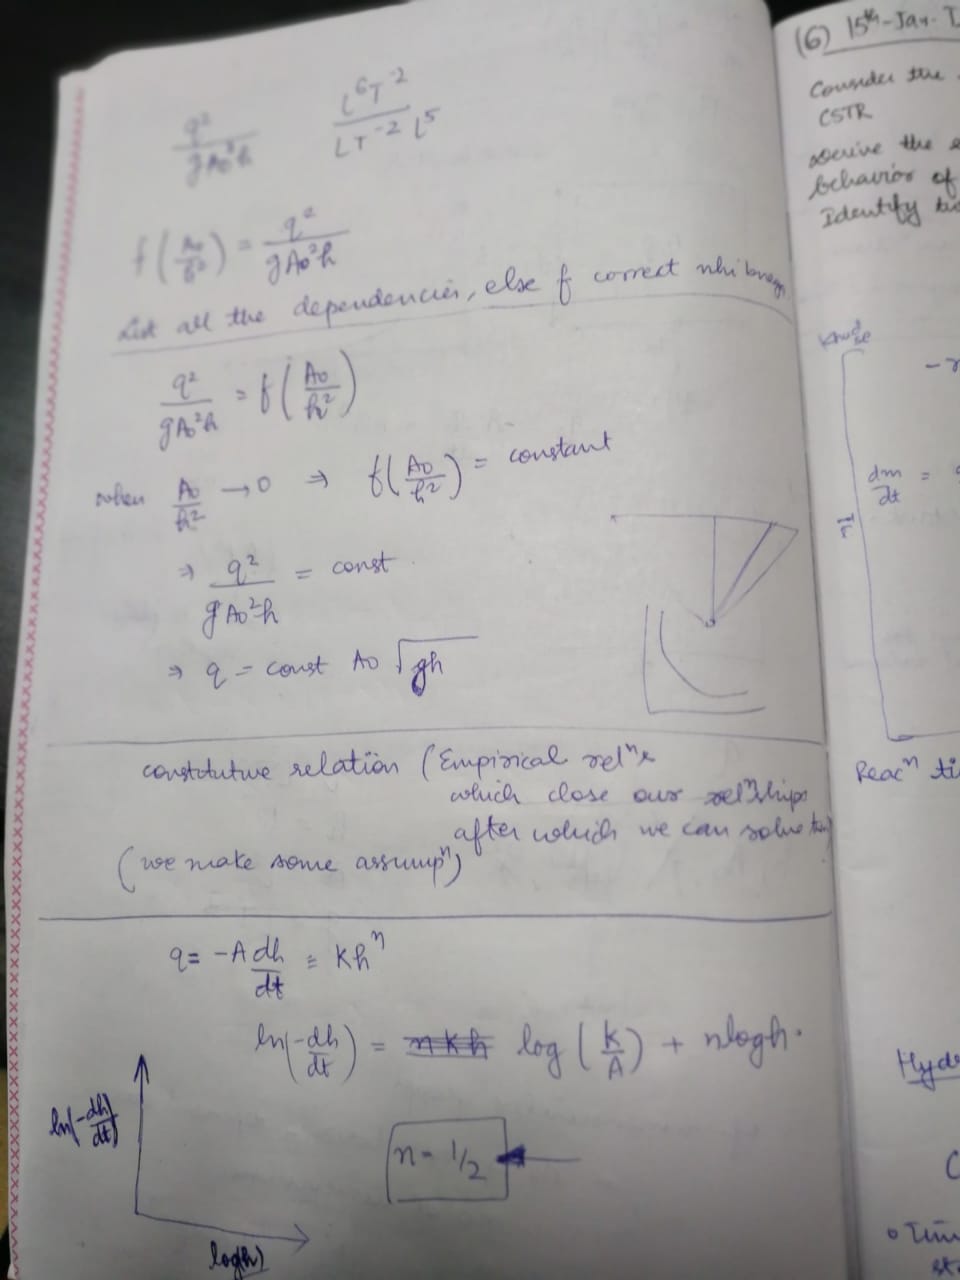 q²/gA₀²h    L⁶T⁻²/LT⁻² L⁵
f(A₀/h²) = q²/gA₀²h
List all the dependencies, else f correct nhi
q²/gA₀²h = f(A₀/h²)
when A₀/h² → 0 ⇒ f(A₀/h²) = constant
⇒ q²/gA₀²h = const
⇒ q = const A₀ √gh
constitutive relation (Empirical relⁿs
which close our relⁿships
after which we can solve
(we make some assumpⁿ)
q = -A dh/dt = Khⁿ
ln(-dh/dt) = log(K/A) + nlogh.
ln(-dh/dt)
n = 1/2
log(h)
(6) 15th - Jan.
Consider the
CSTR
Derive the
behavior of
Identify
dm/dt =
Reacⁿ
Hyd